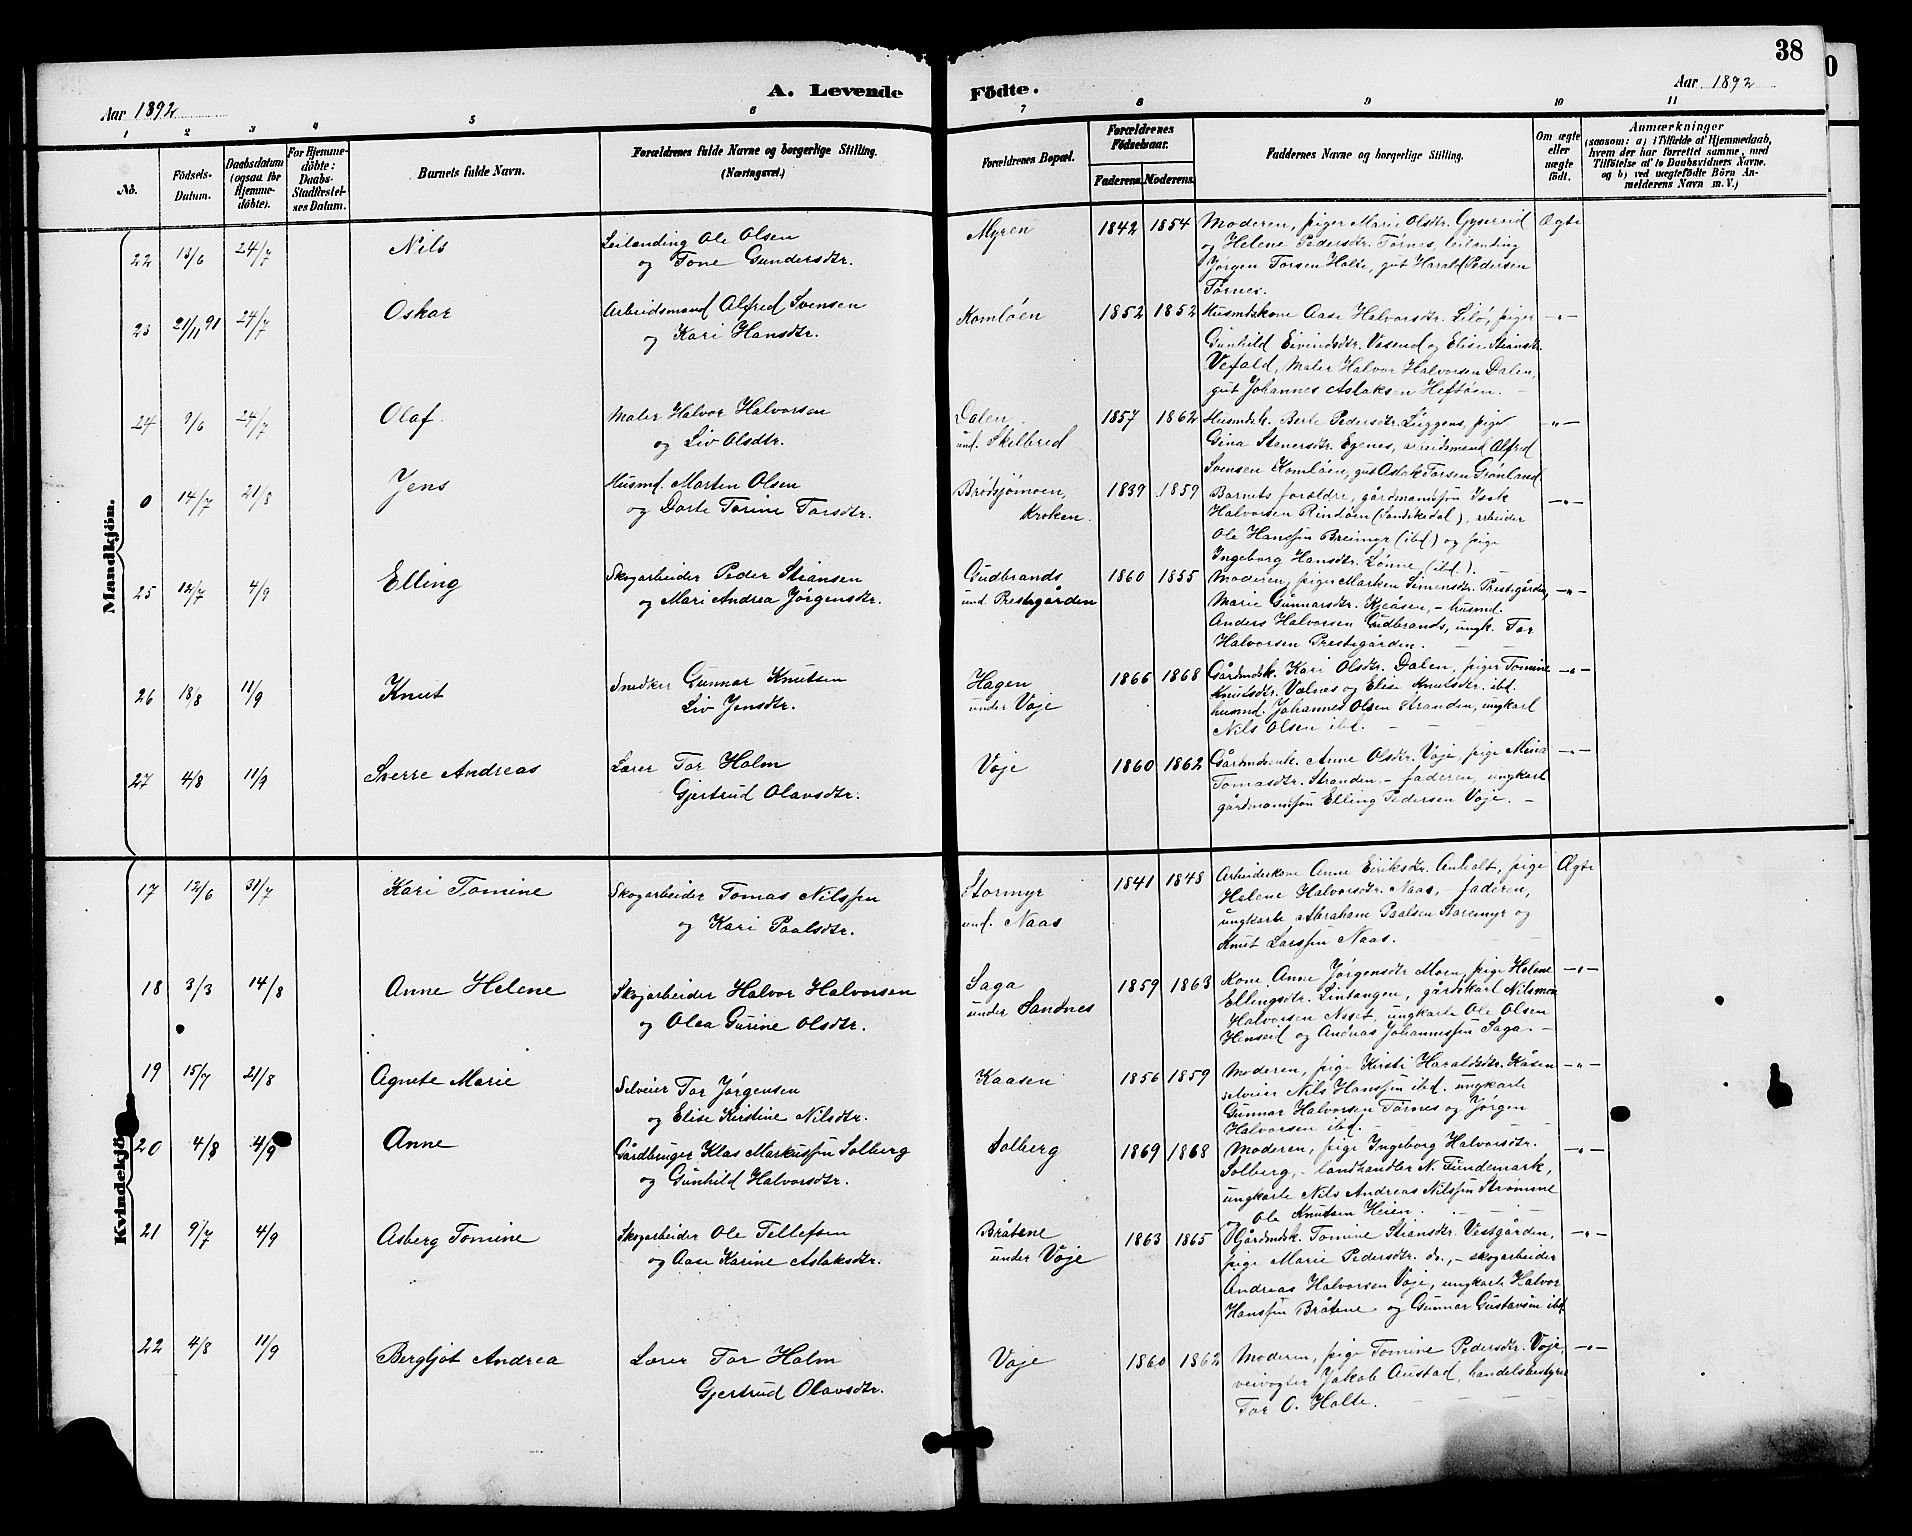 38
Aar 1892
A. Levende Födte.
Aar 1892
1 2 3 4 5 6 7 8 9 10 11
No.
Födsels-Datum.
Daabsdatum (ogsaa for Hjemme-döbte).
For Hjemme-döbte: Daabs-Stadfæstel-ses Datum.
Barnets fulde Navn.
Forældrenes fulde Navne og borgerlige Stilling. (Næringsvei.)
Forældrenes Bopæl.
Forældrenes Födselsaar.
Faderens. Moderens.
Faddernes Navne og borgerlige Stilling.
Om ægte eller uægte födt.
Anmærkninger
(saasom: a) i Tilfælde af Hjemmedaab, hvem der har forrettet samme, med Tilföielse af to Daabsvidners Navne, og b) ved uægtefödte Börn An-melderens Navn m. V.)
Mandkjön.
22 13/6 24/7 Nils
Leilending Ole Olsen
og Tone Gundersdtr.
Myren 1842 1854
Moderen, piger Mari Olsdtr. Gysereid
og Helene Pedersdtr. Tørnes, leilending
Jørgen Torsen Holte, gut Harald Pedersen
Tørnes.
Ægte
23 21/11 91 24/7 Oskar
Arbeidsmand Alfred Svensen
og Kari Hansdtr.
Komløen 1852 1852
Husmdskone Aase Halvorsdtr. Lilø, piger
Gunhild Eivindsdtr. Vasend og Elise Stiansdtr.
Vefald, maler Halvor Halvorsen Dalen,
gut Johannes Aslaksen Heftøen. -
-"-
24 9/6 24/7 Olaf
Maler Halvor Halvorsen
og Liv Olsdtr.
Dalen,
und. Skilbred 1857 1862
Husmdsk. Berte Pedersdtr. Liggens, pige
Gina Stenersdtr. Egenes, arbeidsmand Alfred
Svensen Komløen, gut Aslak Torsen Grønland
-"-
0 14/7 21/8 Jens
Husmd. Morten Olsen
og Dorte Torine Torsdtr.
Brødsjømoen,
Kroken. 1839 1859
Barnets foreldre, gårdmandssøn Isak
Halvorsen Rindøen (Sandøkedal), arbeider
Ole Hanssen Breimyr (ibd.) og pige
Ingeborg Hansdtr. Lønne (ibd.).
-"-
25 12/7 4/9 Elling
Skogarbeider Peder Stiansen
og Mari Andrea Jørgensdtr.
Gudbrands
und. Prestegården 1860 1855
Moderen, piger Maren Simensdtr. Prestegården,
Marie Gunnarsdtr. Kjeåsen, - husmd.
Anders Halvorsen Gudbrands, ungk. Tor
Halvorsen Prestegården.
-"-
26 18/8 11/9 Knut
Snedker Gunnar Knutsen
Liv Jensdtr.
Hagen
under Voje 1866 1868
Gårdmdsk. Kari Olsdtr. Dalen, piger Tomine
Knutsdtr. Valnes og Elise Knutsdtr. ibd.
husmd. Johannes Olsen Stranden, ungkarl
Nils Olsen ibd.
-"-
27 4/8 11/9 Sverre Andreas
Lærer Tor Holm
Gjertrud Olavsdtr.
Voje 1860 1862
Gårdmdsenk. Anne Olsdtr. Voje, pige Mina
Tomasdtr. Stranden - faderen, ungkarl
gårdmandssøn Elling Pedersen Voje. -
-"-
Kvindekjö
17 12/6 31/7 Kari Tomine
Skogarbeider Tomas Nilssen
og Kari Paalsdtr.
Stormyr
und. Naas 1841 1848
Arbeiderkone Anne Eiriksdtr. Anholt, pige
Helene Halvorsdtr. Naas, - faderen,
ungkarle Abraham Paalsen Storemyr og
Knut Larssen Naas.
Ægte
18 3/3 14/8 Anne Helene
Skogarbeider Halvor Halvorsen
og Olea Gurine Olsdtr.
Saga
under Sandnes 1859 1863
Kone Anne Jørgensdtr Moen, pige Helene
Ellingsdtr. Lintangen, gårdskarl Nilsmon
Halvorsen Næset, ungkarle Ole Olsen
Henseid og Andreas Johannessen Saga. -
-"-
19 15/7 21/8 Agnete Marie
Selveier Tor Jørgensen
og Elise Kirstine Nilsdtr.
Kaasen 1856 1859
Moderen, pige Kirsti Haraldsdtr. Kåsen
selveier Nils Hanssen ibd. ungkarle
Gunnar Halvorsen Tørnes og Jørgen
Halvorsen ibd.
-"-
20 4/8 4/9 Anne
Gårdbruger Klas Markussen Solberg
og Gunhild Halvorsdtr.
Solberg 1869 1868
Moderen, pige Ingeborg Halvorsdtr.
Solberg, - landhandler N. Tundemark,
ungkarle Nils Andreas Nilssen Strømme
Ole Knutsen Heien.
-"-
21 9/7 4/9 Asberg Tomine
Skogarbeider Ole Tellefsen
og Aase Karine Aslaksdtr.
Bråtene
under Voje 1863 1865
Gårdmdsk. Tomine Stiansdtr. Vestgården,
pige Marie Pedersdtr. do., - skogarbeider
Andreas Halvorsen Voje, ungkarle Halvor
Hanssen Bråtene og Gunnar Gustavsen ibd
-"-
22 4/8 11/9 Bergljot Andrea
Lærer Tor Holm
Gjertrud Olavsdtr.
Voje 1860 1862
Moderen, pige Tomine Pedersdtr. Voje,
veivogter Jakob Austad, handelsbestyrer
Tor O. Holte.
-"-